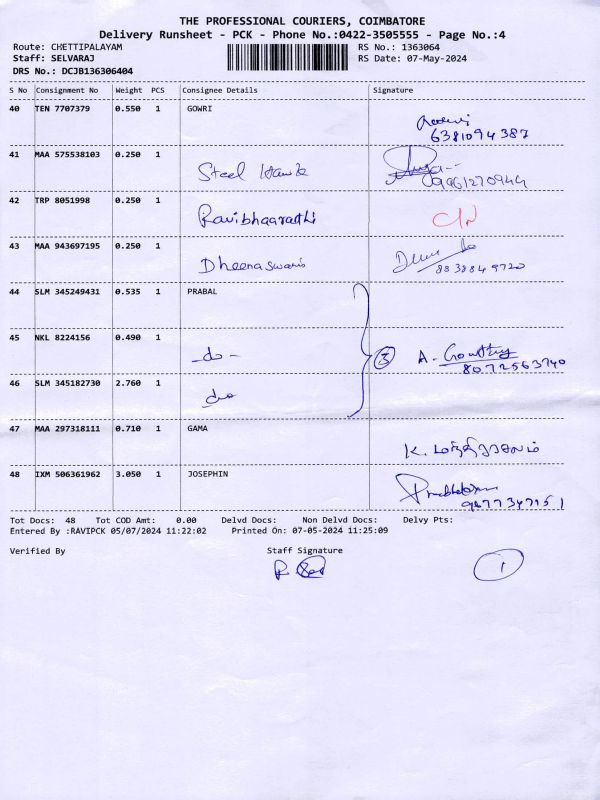 THE PROFESSIONAL COURIERS, COIMBATORE
Delivery Runsheet - PCK - Phone No.:0422-3505555 - Page No.:4
Route: CHETTIPALAYAM RS No.: 1363064
Staff: SELVARAJ RS Date: 07-May-2024
DRS No.: DCJB136306404
S No Consignment No Weight PCS Consignee Details Signature
40 TEN 7707379 0.550 1 GOWRI
6381094387
41 MAA 575538103 0.250 1
Steel Hawk
09961270944
42 TRP 8051998 0.250 1
Ravibhaarathi
43 MAA 943697195 0.250 1
Dheenaswaris
8838849720
44 SLM 345249431 0.535 1 PRABAL
45 NKL 8224156 0.490 1
-do- ③ A. Gowthry
8072563740
46 SLM 345182730 2.760 1
do
47 MAA 297318111 0.710 1 GAMA
K.
48 IXM 506361962 3.050 1 JOSEPHIN
9877347151
Tot Docs: 48 Tot COD Amt: 0.00 Delvd Docs: Non Delvd Docs: Delvy Pts:
Entered By :RAVIPCK 05/07/2024 11:22:02 Printed On: 07-05-2024 11:25:09
Verified By Staff Signature
1